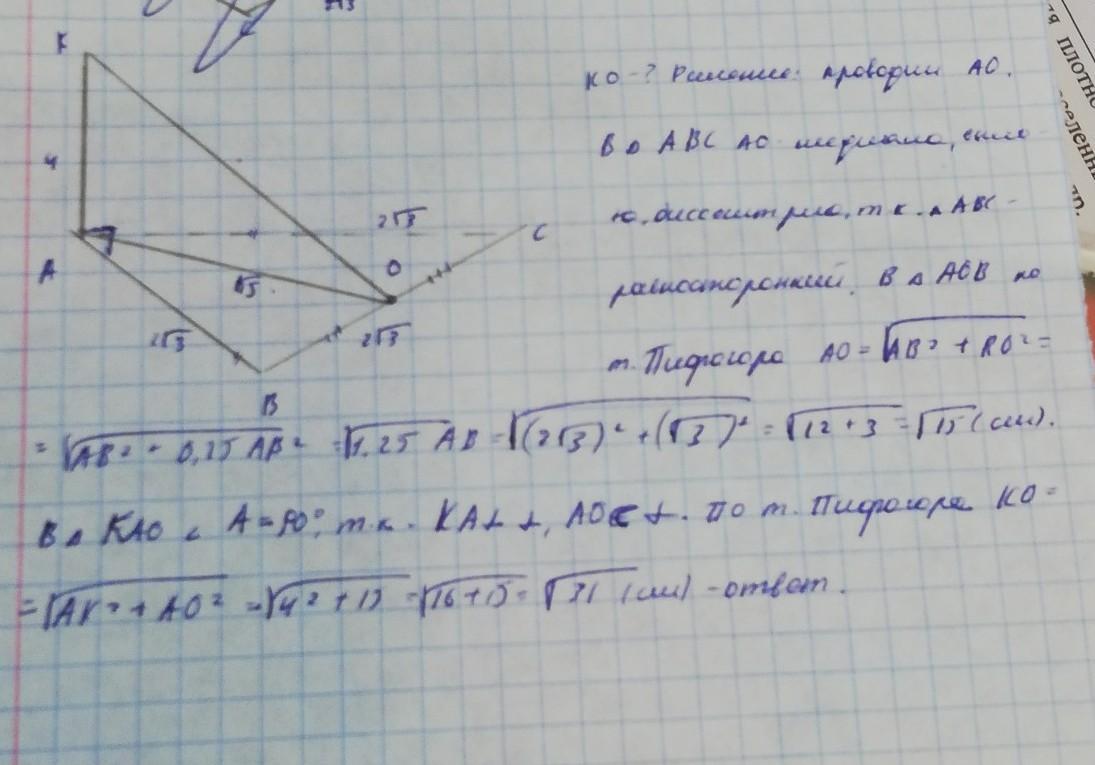 2√3
K
4
A
2√3
C
O
√15
2√3
2√3
B
KO-? Решение: проводим AO.
В △ ABC AO медиана, 
ю, биссектриса, т.к. △ABC -
равносторонний. В △ AOB по
т. Пифагора AO = √AB² + BO² =
= √AB² + 0,25 AB² = √1,25 AB = √(2√3)² + (√3)² = √12+3 = √15 (см).
В △ KAO ∠ A = 90°, т.к. KA ⊥ ⊥, AO ⊂ ⊥. По т. Пифагора KO =
= √AK² + AO² = √4² + 15 = √16+15 = √31 (см) - ответ.
плотно
селенны
др.